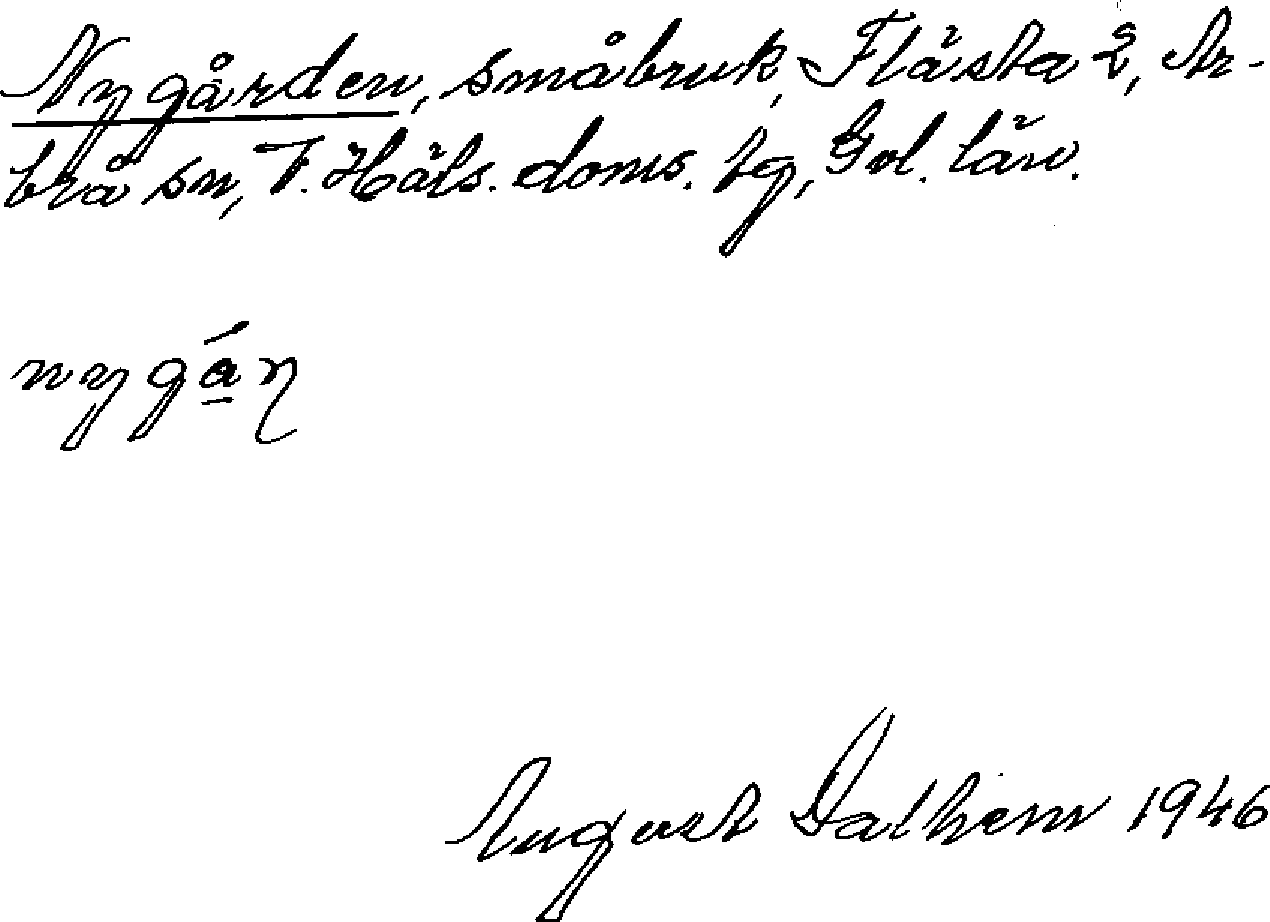 Nygården, småbruk, Flästa 2, Ar-
brå sn, V. Häls. doms. fg, Gvl. län.
nygá̱ṇ
August Dalhem 1946